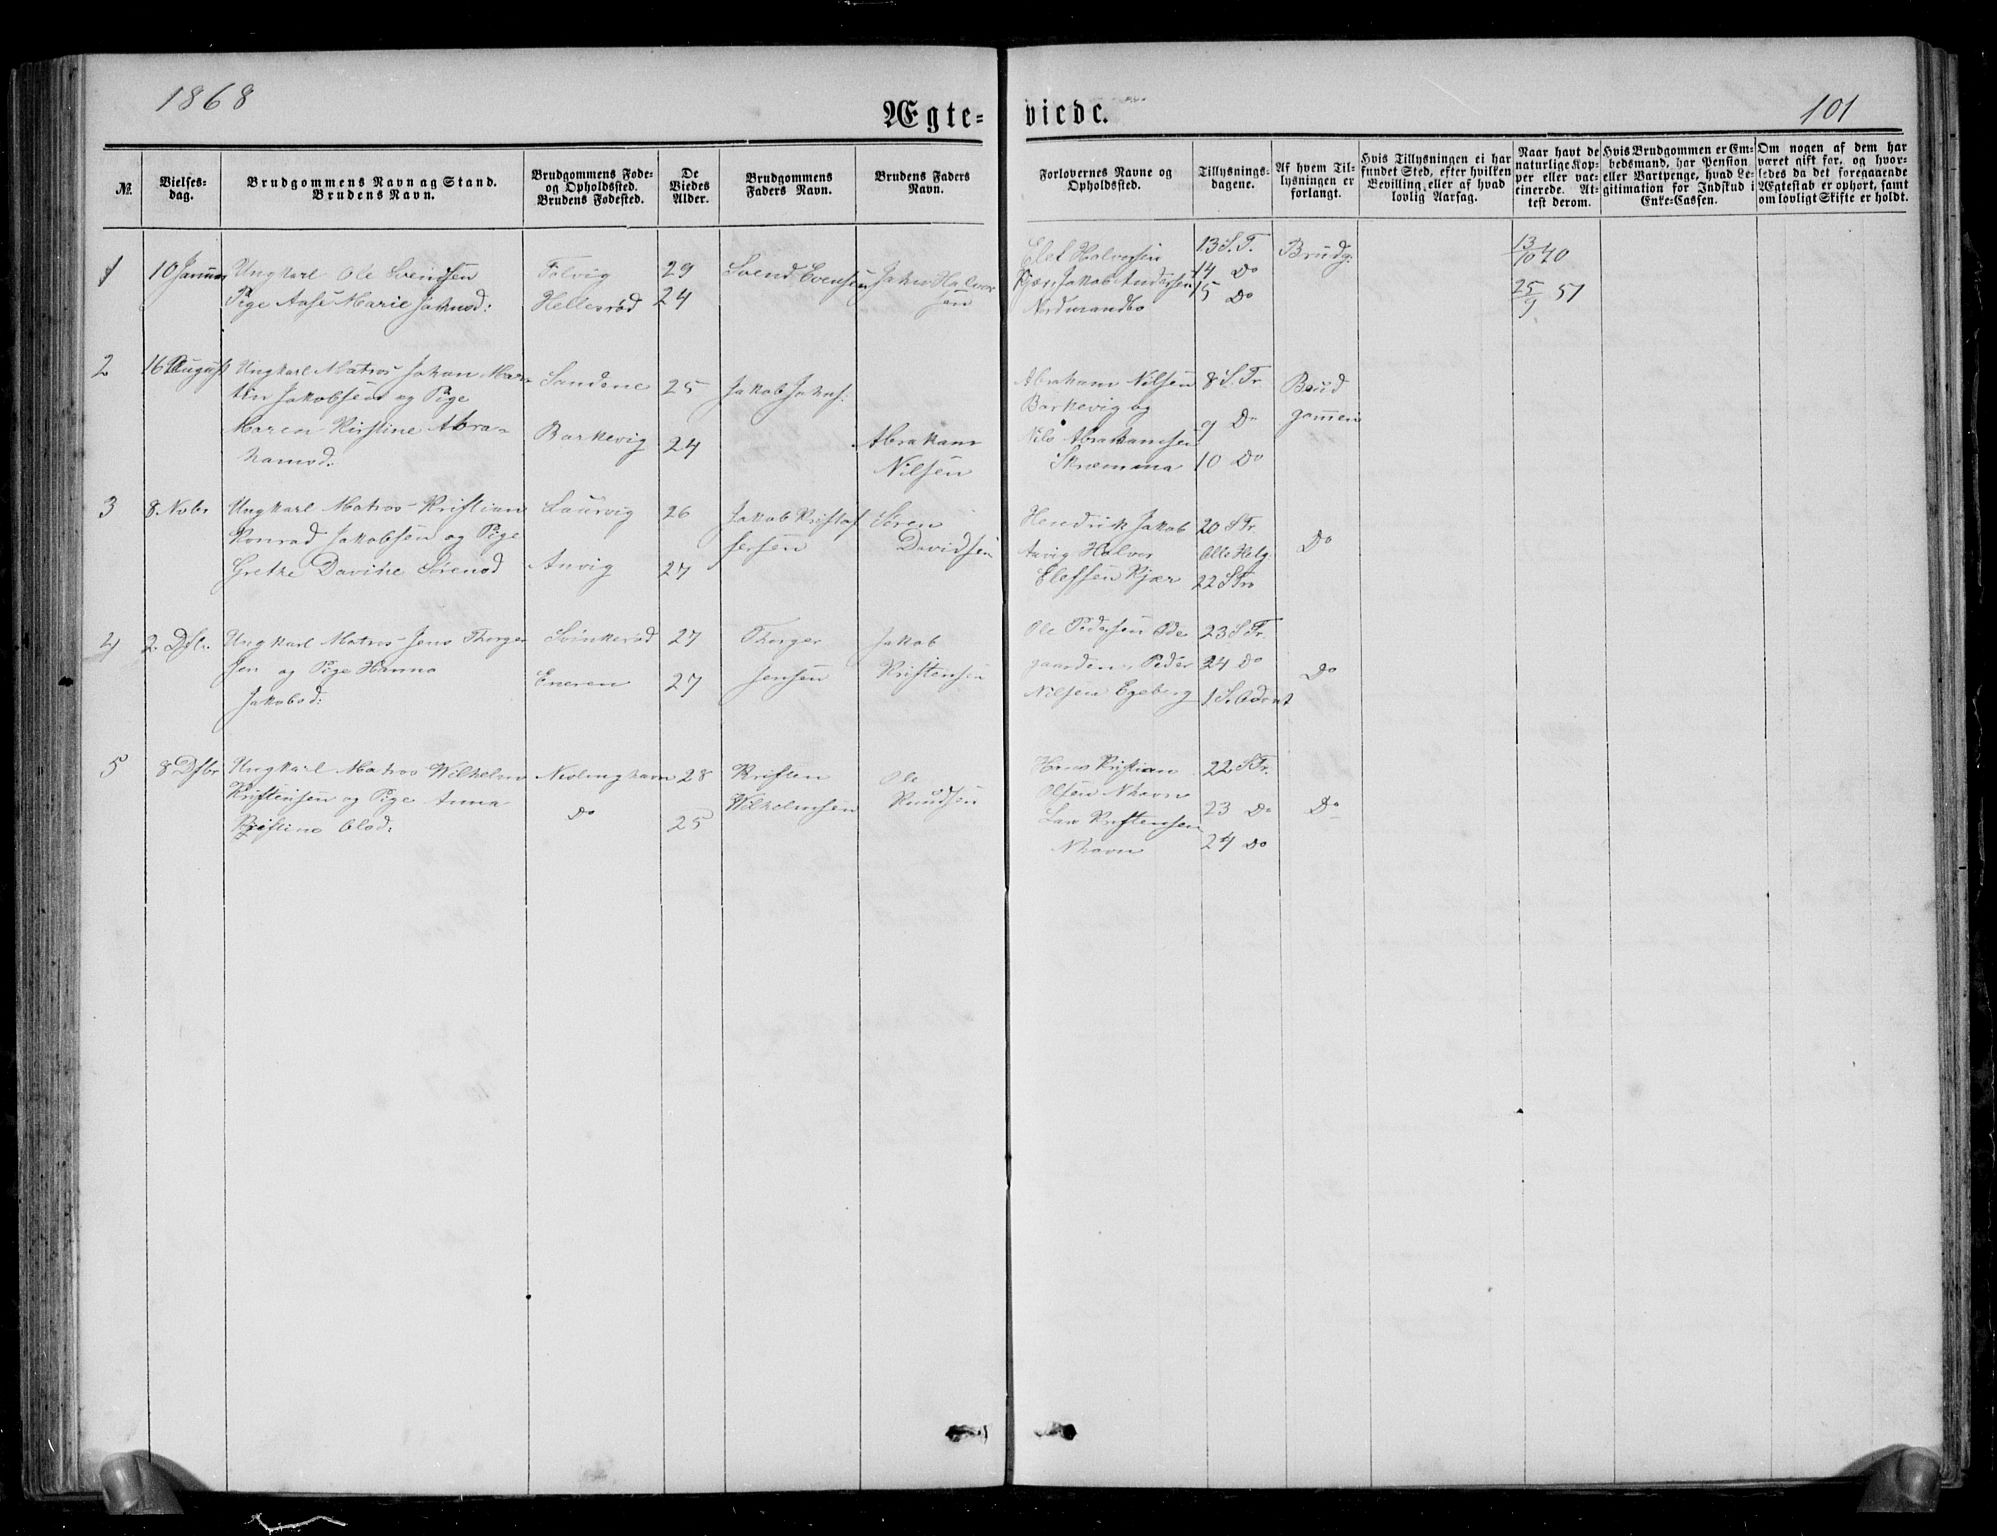 1868
Ægte=
viede.
101
№.
Vielses=
dag.
Brudgommens Navn og Stand.
Brudens Navn.
Brudgommens Føde=
og Opholdssted.
Brudens Fødested.
De
Viedes
Alder.
Brudgommens
Faders Navn.
Brudens Faders
Navn.
Forlovernes Navne og
Opholdssted.
Tillysnings=
dagene.
Af hvem Til=
lysningen er
forlangt.
Hvis Tillysningen ei har
fundet Sted, efter hvilken
Bevilling eller af hvad
lovlig Aarsag.
Naar havt de
naturlige Kop=
per eller vac=
cinerede. At=
test derom.
Hvis Brudgommen er Em=
bedsmand, har Pension
eller Vartpenge, hvad Le=
gitimation for Indskud i
Enke=Cassen.
Om nogen af dem har
været gift før, og hvor=
ledes da det foregaaende
Ægteskab er ophørt, samt
om lovligt Skifte er holdt.
1
10 Januar
Ungkarl Ole Svendsen
Pige Aase Marie Johnsd:
Folvig
Hellesrød
29
24
Svend Evensen
John Halvor
sen
Elef Halvorsen
Kjær, Jakob Andersen
Nordmandbo
13 S. T.
14 Do
15 Do
Brudg:
13/10 40
25/9 51
2
16 August
Ungkarl Matros Johan Mar=
tin Jakobsen og Pige
Maren Kirstine Abra=
hamsd:
Sandene
Barkevig
25
24
Jakob Johns.
Abraham
Nilsen
Abraham Nilsen
Barkevig og
Nils Abrahamsen
Skræmma
8 S. Tr.
9 Do
10 Do
Brud
gommen
3
8. Nvbr
Ungkarl Matros Kristian
Konrad Jakobsen og Pige
Grethe Davike Sørensd
Laurvig
Anvig
26
27
Jakob Kristof
fersen
Søren
Davidsen
Hendrik Jakob
Anvig Halvor
Elefsen Kjær
20 S Tr
Alle Helg.
22 S Tr
Do
4
2. Dsbr.
Ungkarl Matros Jens Thorger
sen og Pige Hanna
Jakobsd:
Svinkerød
Eneren
27
27
Thorger
Jensen
Jakob
Kristensen
Ole Pedersen Øde
gaarden, Peder
Nilsen Egeberg
23 S Tr.
24 Do
1 S. Advnt
Do
5
8 Dsbr
Ungkarl Matros Wilhelm
Kristensen og Pige Anna
Kristine Olsd:
Nevlunghavn
Do
28
25
Kristen
Wilhelmsen
Ole
Knudsen
Hans Kristian
Olsen Nhavn
Lars Kristensen
Nhavn
22 S Tr.
23 Do
24 Do
Do